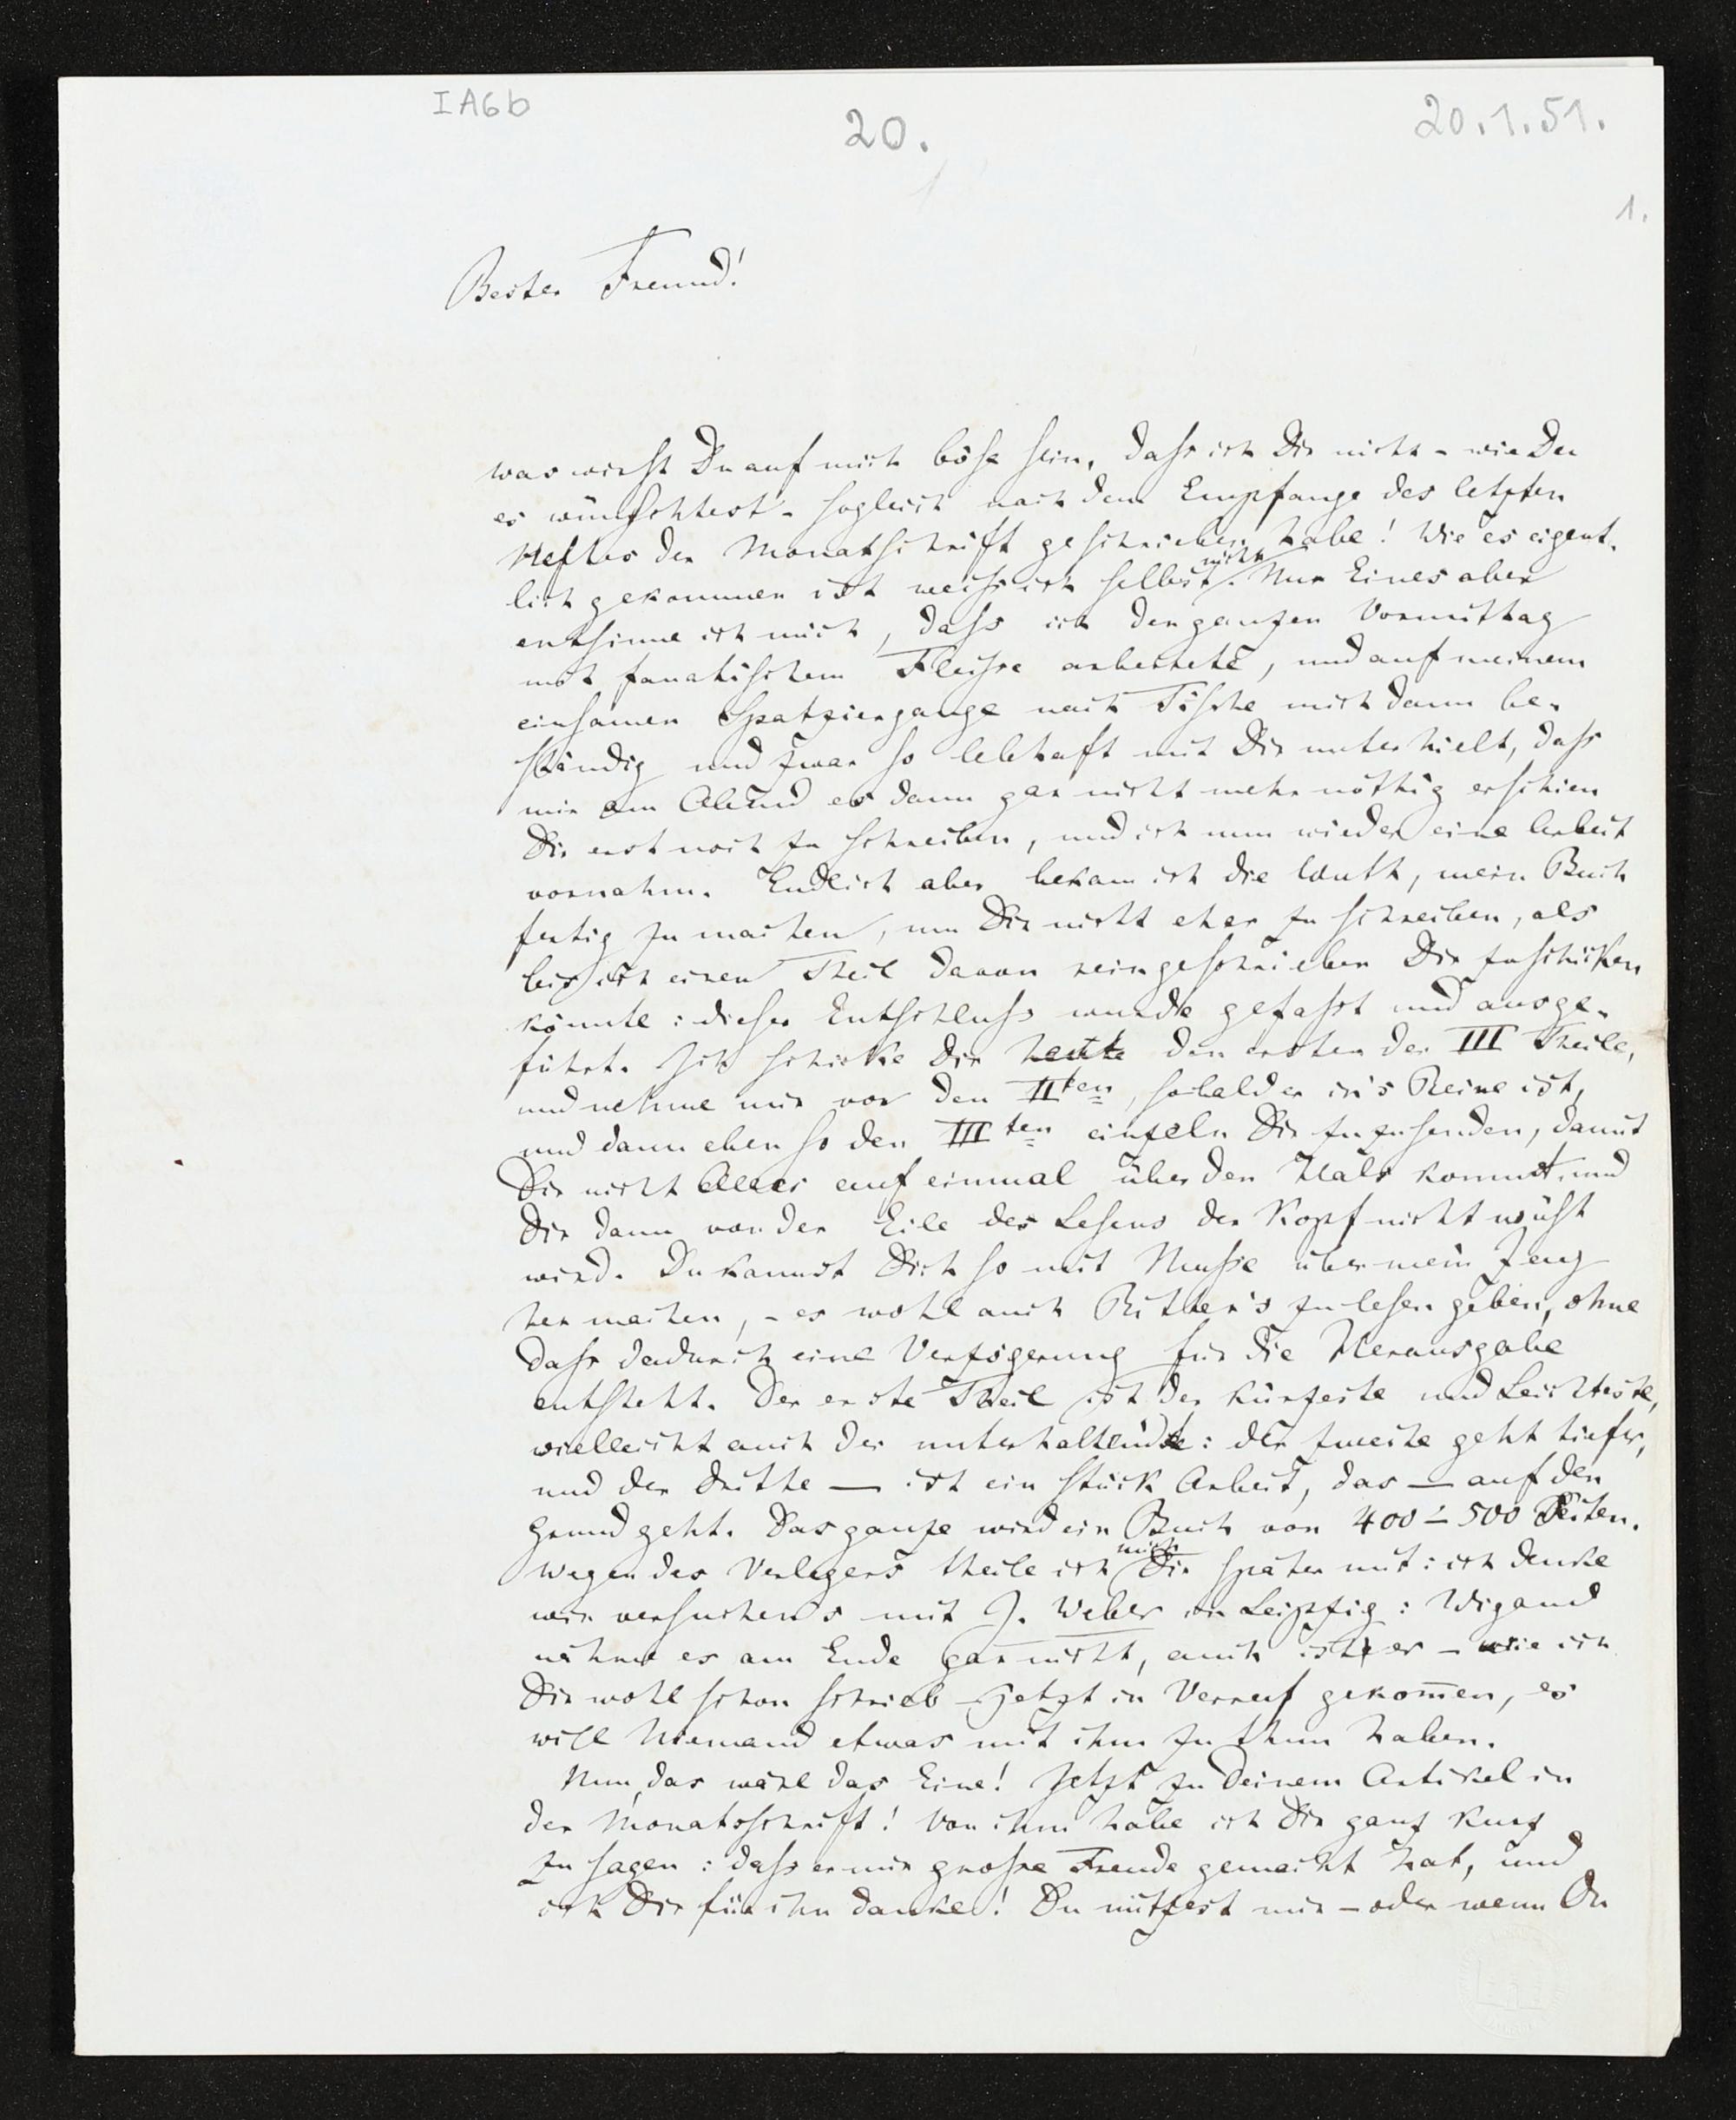 IA6b
20.
20.1.51.
1.
Bester Freund!
was wirst Du auf mich böse sein, dass ich Dir nicht - wie Du
es wünschtest - sogleich nach dem Empfange des letzten
Heftes der Monatschrift geschrieben habe! Wie es eigent-
lich gekommen ist weiss ich selbst nicht. Nur Eines aber
entsinne ich mich, dass ich den ganzen Vormittag
mit fanatischem Fleisse arbeitete, und auf meinem
einsamen Spatziergange nach Tische mich dann be-
ständig und zwar so lebhaft mit Dir unterhielt, dass
mir am Abend es dann gar nicht mehr nöthig erschien
Dir erst noch zu schreiben, und ich nun wieder eine Arbeit
vornahm. Endlich aber bekam ich die Wuth, mein Buch
fertig zu machen, um Dir nicht eher zu schreiben, als
bis ich einen Theil davon reingeschrieben Dir zuschicken
könnte: dieser Entschluss wurde gefasst und ausge-
führt. Ich schicke Dir heute den ersten der III Theile,
und nehme mir vor den IIten, sobald er in's Reine ist,
und dann eben so den IIIten einzeln Dir zuzusenden, damit
Dir nicht Alles auf einmal über den Hals kommt und
Dir dann von der Eile des Lesens der Kopf nicht wüst
wird. Du kannst Dich so mit Musse über mein Zeug
her machen, - es wohl auch Ritter's zu lesen geben, ohne
dass dadurch eine Verzögerung für die Herausgabe
entsteht. Der erste Theil ist der kürzeste und Leichteste,
vielleicht auch der unterhaltendste: der zweite geht tiefer,
und der dritte — ist ein Stück Arbeit, das — auf den
Grund geht. Das ganze wird ein Buch von 400 - 500 Seiten.
Wegen des Verlegers theile ich mich Dir später mit: ich denke
wir versuchen's mit J. Weber in Leipzig: Wigand
nähme es am Ende gar nicht, auch ist er - wie ich
Dir wohl schon schrieb - jetzt in Verruf gekommen, es
will Niemand etwas mit ihm zu thun haben.
Nun, das wäre das Eine! Jetzt zu Deinem Artikel in
der Monatsschrift! Von ihm habe ich Dir ganz kurz
zu sagen: dass er mir grosse Freude gemacht hat, und
ich Dir für ihn danke! Du nützest mir - oder wenn Du